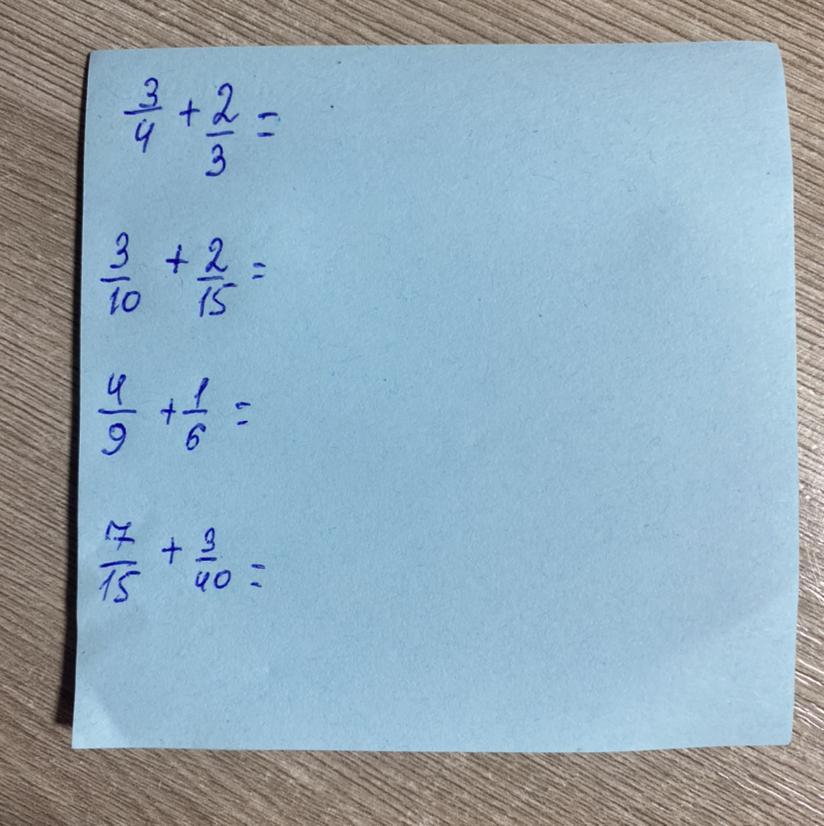 3/4 + 2/3 =
3/10 + 2/15 =
4/9 + 1/6 =
7/15 + 3/40 =